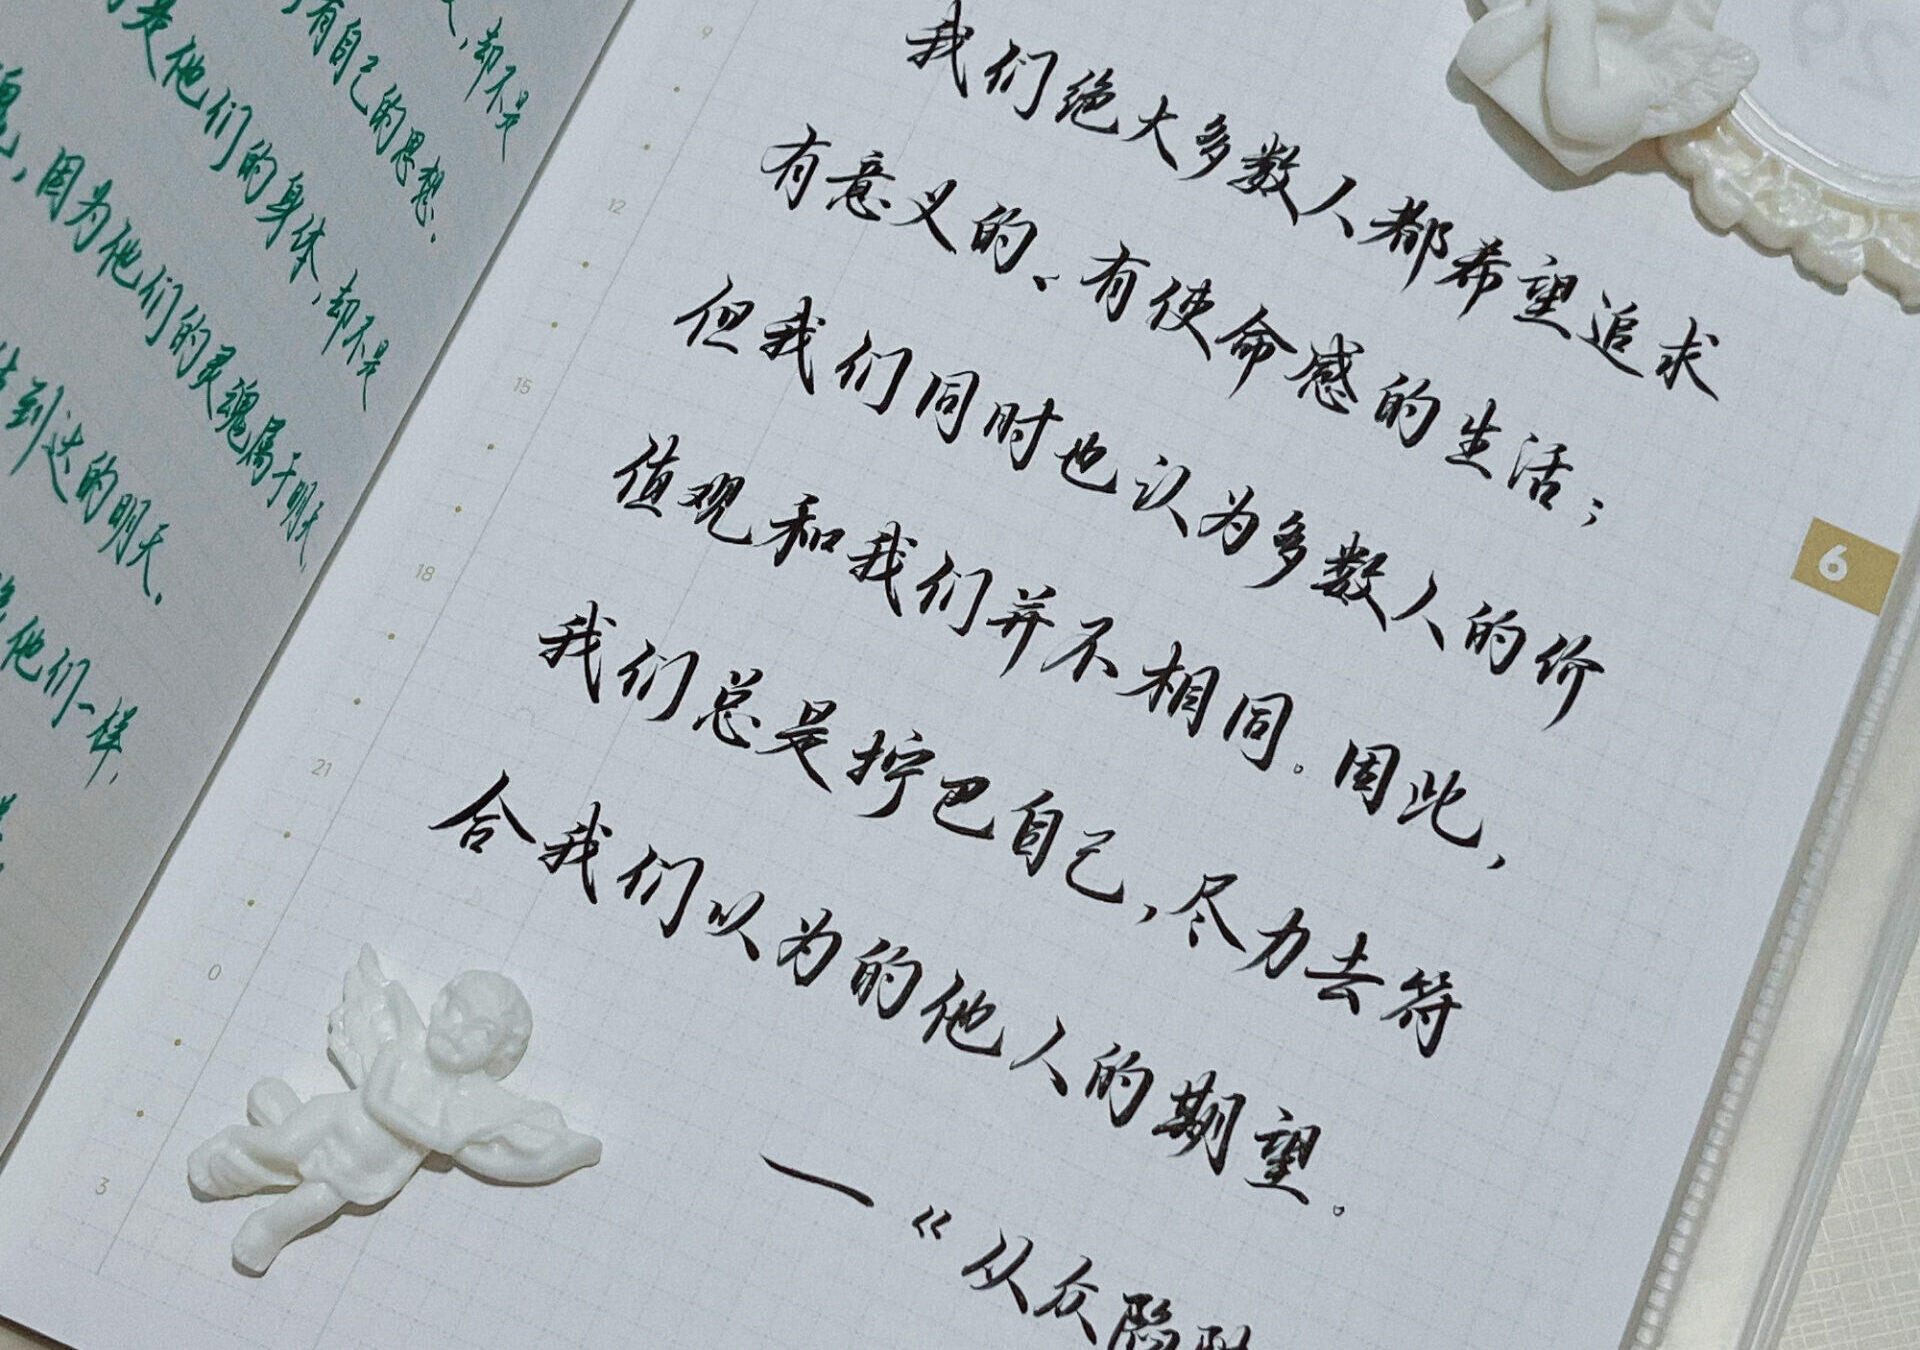 却不是
有自己的思想.
是他们的身体,却不是
,因为他们的灵魂属于明天
到达的明天.
他们一样,
9
12
15
18
21
0
3
我们绝大多数人都希望追求
有意义的、有使命感的生活;
但我们同时也认为多数人的价
值观和我们并不相同。因此,
我们总是拧巴自己,尽力去符
合我们以为的他人的期望。
—《从众陷阱
6